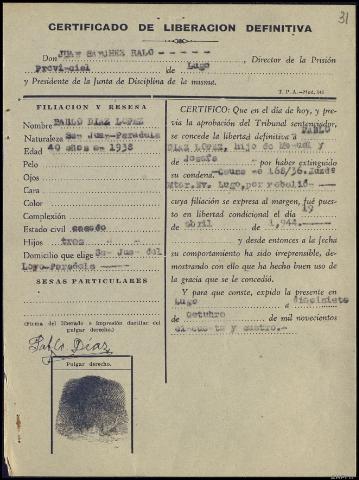 31
CERTIFICADO DE LIBERACION DEFINITIVA
Don JUAN SANCHEZ RALO - - - - - -
, Director de la Prisión
Provincial de Lugo
y Presidente de la Junta de Disciplina de la misma.
T. P. A.—Mod. 341
FILIACION Y RESEÑA
Nombre PABLO DIAZ LOPEZ
Naturaleza San Juan-Paradela
Edad 40 años en 1938
Pelo
Ojos
Cara
Color
Complexión
Estado civil casado
Hijos tres - - - -
Domicilio que elige San Juan del
Loyo-Paradela - - - -
SEÑAS PARTICULARES
(Firma del liberado e impresión dactilar del
pulgar derecho).
Pablo Díaz
Pulgar derecho.
CERTIFICO: Que en el día de hoy, y pre-
via la aprobación del Tribunal sentenciador,
se concede la libertad definitiva a PABLO
DIAZ LOPEZ, hijo de Manuel y
de Josefa - - - - por haber extinguido
su condena. - Causa nº 168/36. Juzgº
Mtar. Ev. Lugo, por rebelión -
cuya filiación se expresa al margen, fué pues-
to en libertad condicional el día 19
de abril de 1,944.- - - - -
y desde entonces a la fecha
su comportamiento ha sido irreprensible, de-
mostrando con ello que ha hecho buen uso de
la gracia que se le concedió.
Y para que conste, expido la presente en
Lugo a diecisiete
de Octubre de mil novecientos
cincuenta y cuatro.-